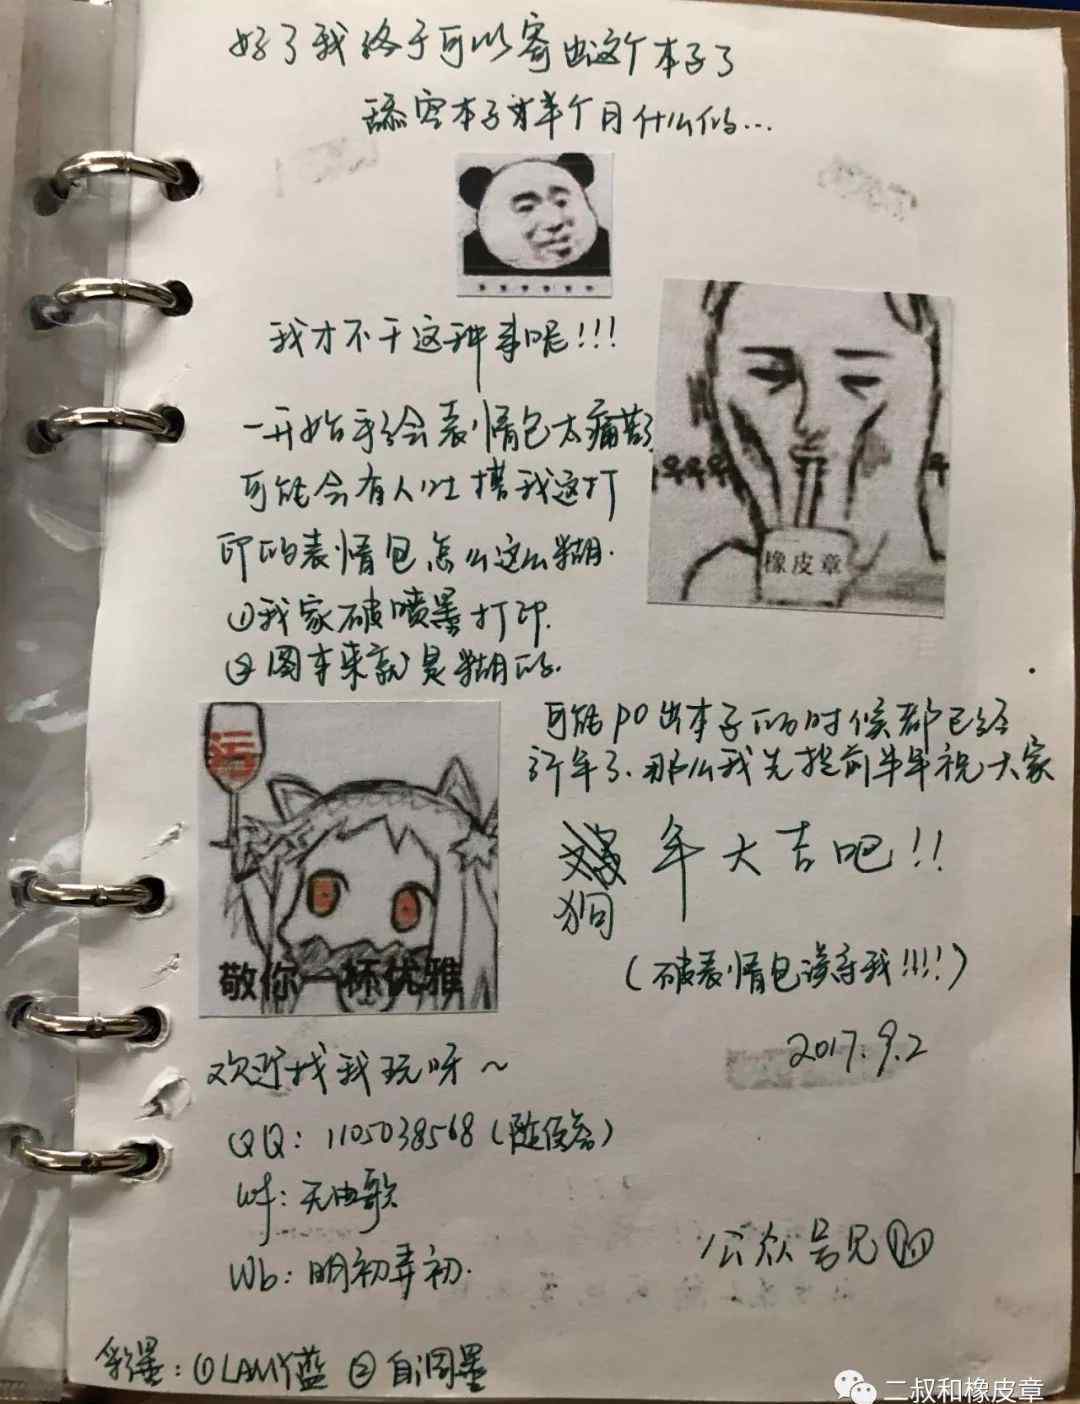 好了我终于可以寄出这个本子了
舔空本子半个月什么的...
我才不干这种事呢!!!
一开始手绘表情包太痛苦了
可能会有人吐槽我这打
印的表情包怎么这么糊.
①我家破喷墨打印.
②图本来就是糊的.
橡皮章
可能po出本子的时候都已经
新年了.那么我先提前半年祝大家
狗年大吉吧!!
(破表情包误导我!!!!)
2017.9.2
污
敬你一杯优雅
欢迎找我玩呀~
QQ:1105038568(随便套)
wf:无曲歌
Wb:明初弄初.
公众号见
彩墨:①LAMY蓝 ②自调墨
二叔和橡皮章